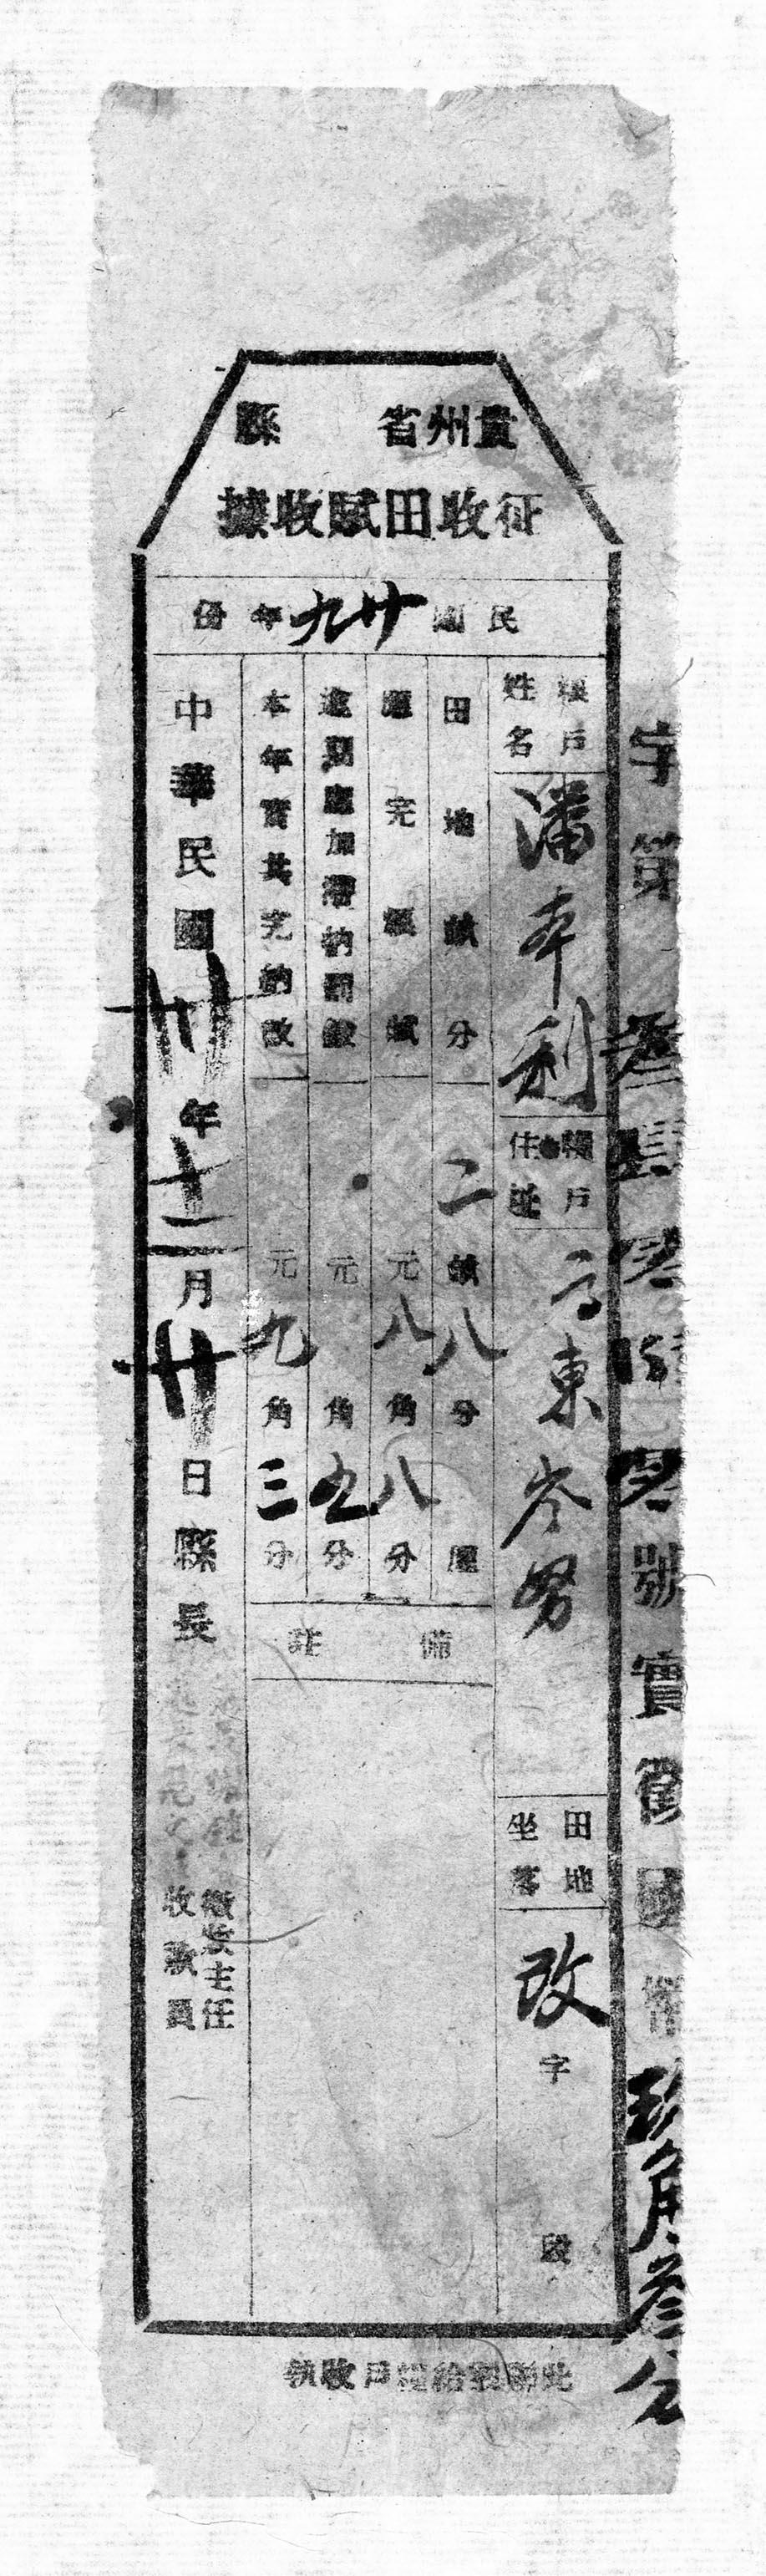 貴州省　縣
征收田賦收據
民國廿九年份
字第叁　零　零號實徵國幣玖角叁分
糧戶姓名
潘本利
糧戶住址
高東岑努
田地坐落
改字　段
田地畝分　二畝八分　厘
應完糧賦　元八角八分
逾期應加滯納罰鍰　元　角五分
本年實共完納數　元九角三分
備註
中華民國卅年十二月廿日縣長
徵收主任
收款員
此聯製給糧戶收執